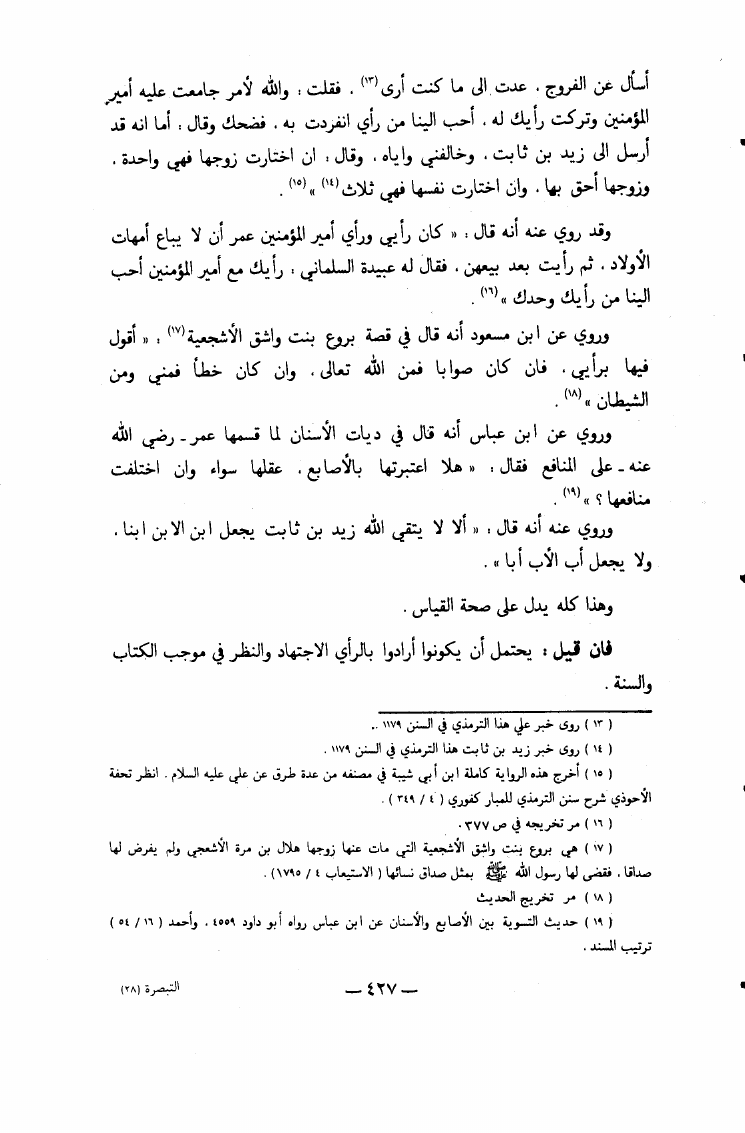 أسأل عن الفروج ، عدت الى ما كنت أرى (١٣) . فقلت : والله لأمر جامعت عليه أمير
المؤمنين وتركت رأيك له ، أحب الينا من رأي انفردت به ، فضحك وقال : أما انه قد
أرسل الى زيد بن ثابت ، وخالفني واياه ، وقال : ان اختارت زوجها فهي واحدة ،
وزوجها أحق بها ، وان اختارت نفسها فهي ثلاث (١٤) » (١٥) .
وقد روي عنه أنه قال : « كان رأيي ورأي أمير المؤمنين عمر أن لا يباع أمهات
الأولاد ، ثم رأيت بعد بيعهن ، فقال له عبيدة السلماني : رأيك مع أمير المؤمنين أحب
الينا من رأيك وحدك » (١٦) .
وروي عن ابن مسعود أنه قال في قصة بروع بنت واشق الأشجعية (١٧) : « أقول
فيها برأيي ، فان كان صوابا فمن الله تعالى ، وان كان خطأ فمني ومن
الشيطان » (١٨) .
وروي عن ابن عباس أنه قال في ديات الأسنان لما قسمها عمر ـ رضي الله
عنه ـ على المنافع فقال : « هلا اعتبرتها بالأصابع ، عقلها سواء وان اختلفت
منافعها ؟ » (١٩) .
وروي عنه أنه قال : « ألا لا يتقي الله زيد بن ثابت يجعل ابن الابن ابنا ،
ولا يجعل أب الأب أبا » .
وهذا كله يدل على صحة القياس .
فان قيل : يحتمل أن يكونوا أرادوا بالرأي الاجتهاد والنظر في موجب الكتاب
والسنة .
( ١٣ ) روى خبر علي هذا الترمذي في السنن ١١٧٩ ..
( ١٤ ) روى خبر زيد بن ثابت هذا الترمذي في السنن ١١٧٩ .
( ١٥ ) أخرج هذه الرواية كاملة ابن أبي شيبة في مصنفه من عدة طرق عن علي عليه السلام . انظر تحفة
الأحوذي شرح سنن الترمذي للمبار كفوري ( ٤ / ٣٤٩ ) .
( ١٦ ) مر تخريجه في ص ٣٧٧ .
( ١٧ ) هي بروع بنت واشق الأشجعية التي مات عنها زوجها هلال بن مرة الأشعجي ولم يفرض لها
صداقا ، فقضى لها رسول الله ﷺ بمثل صداق نسائها ( الاستيعاب ٤ / ١٧٩٥ ) .
( ١٨ ) مر تخريج الحديث
( ١٩ ) حديث التسوية بين الأصابع والأسنان عن ابن عباس رواه أبو داود ٤٥٥٩ ، وأحمد ( ١٦ / ٥٤ )
ترتيب المسند .
— ٤٢٧ —
التبصرة (٢٨)